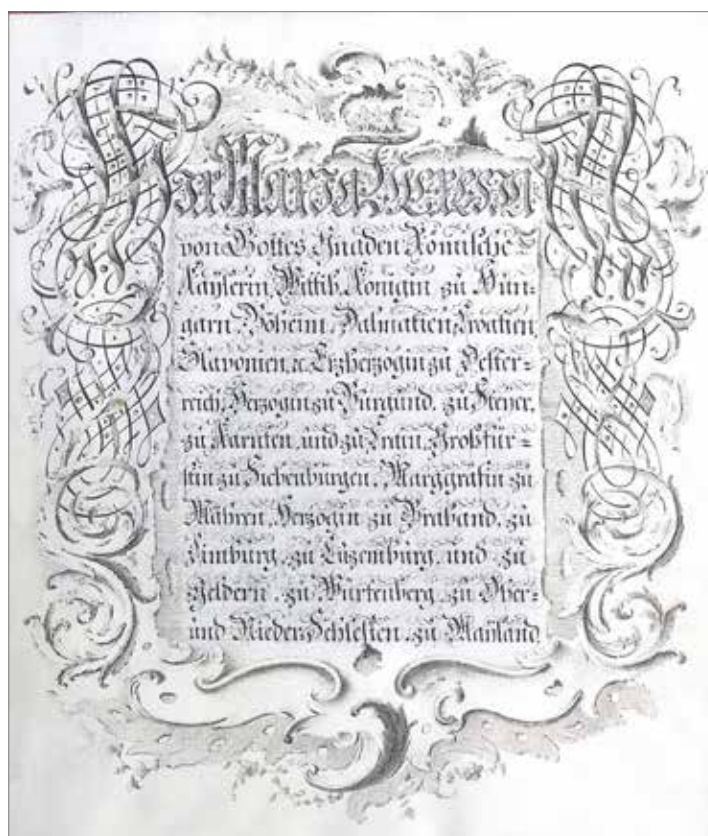 Wir Maria Theresia
von Gottes Gnaden Römische
Kayserin, Wittib, Königin zu Hun=
garn, Böheim, Dalmatien, Croatien,
Slavonien, &c. Erzherzogin zu Oester=
reich, Herzogin zu Burgund, zu Steyer,
zu Karnten, und zu Crain, Großfür=
stin zu Siebenbürgen, Marggräfin zu
Mähren, Herzogin zu Braband, zu
Limburg, zu Luzemburg, und zu
Geldern, zu Würtenberg, zu Ober=
und Nieder Schlesien, zu Mayland